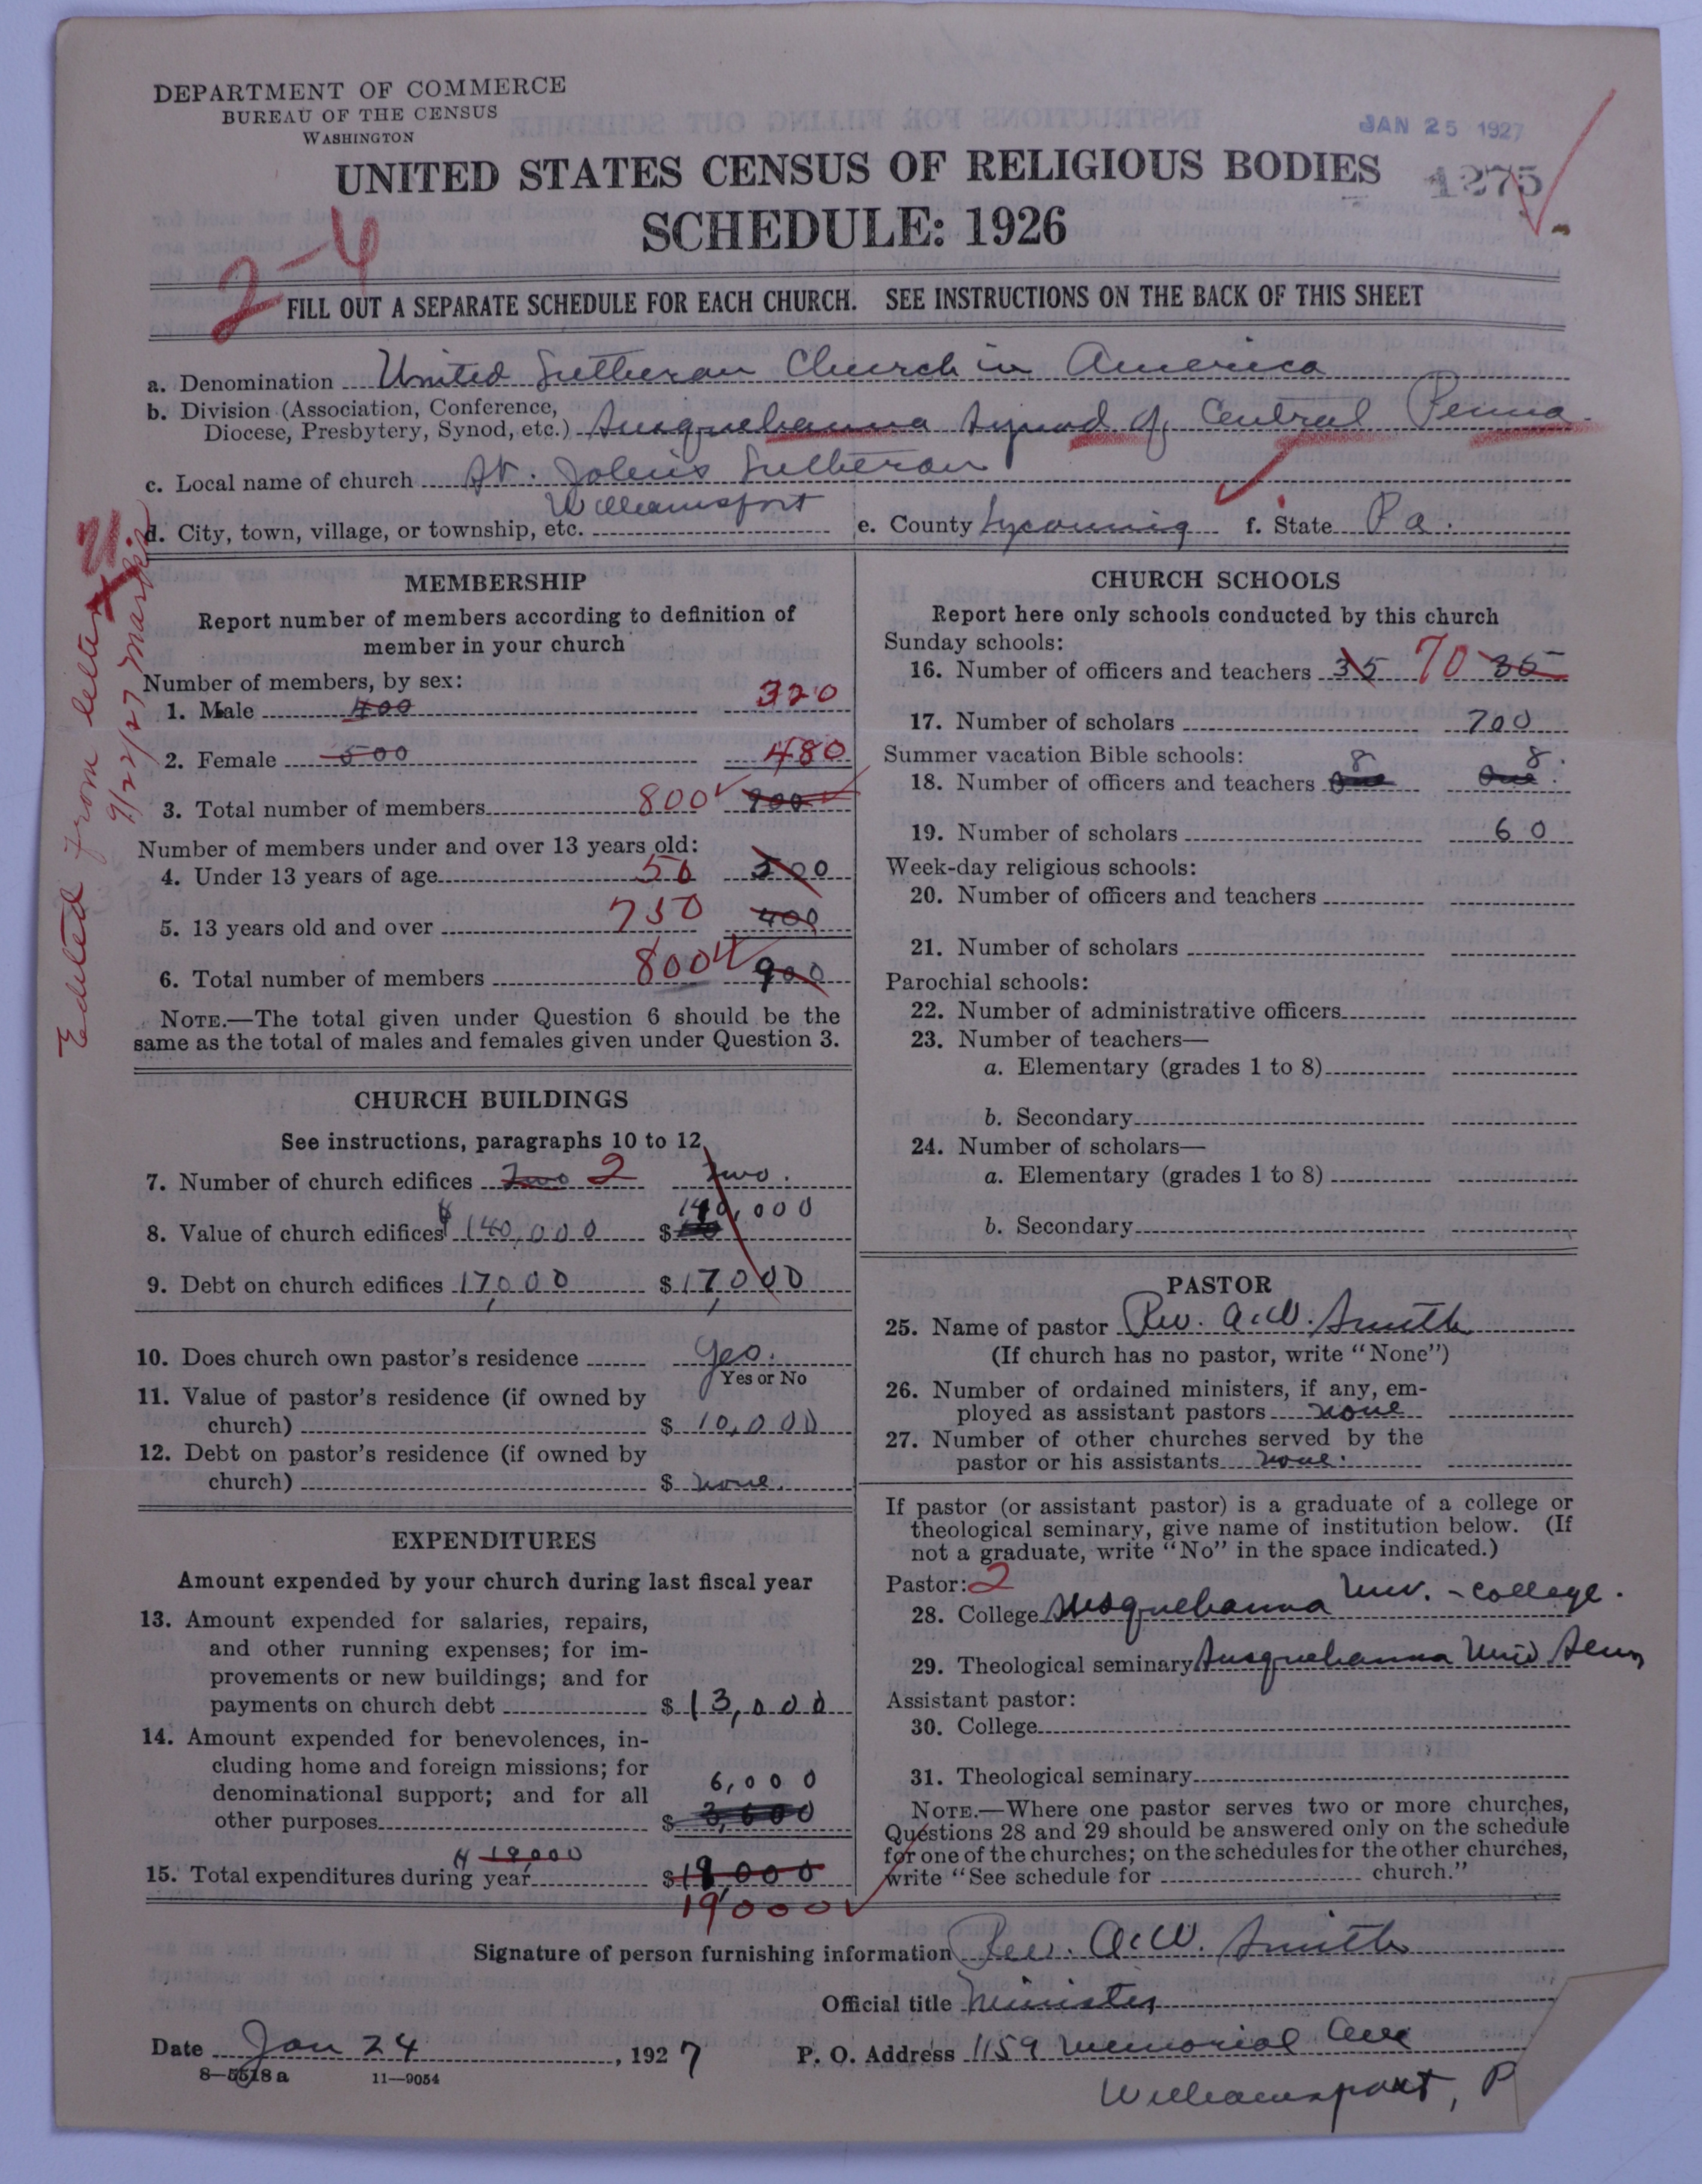 DEPARTMENT OF COMMERCE
BUREAU OF THE CENSUS
WASHINGTON
JAN 25 1927
1275
UNITED STATES CENSUS OF RELIGIOUS BODIES
SCHEDULE: 1926
2-4
FILL OUT A SEPARATE SCHEDULE FOR EACH CHURCH. SEE INSTRUCTIONS ON THE BACK OF THIS SHEET
a. Denomination United Lutheran Church in America
b. Division (Association, Conference,
Diocese, Presbytery, Synod, etc.) Susquehanna Synod of Central Penna
c. Local name of church St. John's Lutheran
d. City, town, village, or township, etc. Williamsport e. County Lycoming f. State Pa.
Edited from letter
9/22/27
MEMBERSHIP
Report number of members according to definition of
member in your church
Number of members, by sex:
1. Male 400 320
2. Female 500 480
3. Total number of members 800 900
Number of members under and over 13 years old:
4. Under 13 years of age 50 500
5. 13 years old and over 750 400
6. Total number of members 800 900
NOTE.—The total given under Question 6 should be the
same as the total of males and females given under Question 3.
CHURCH BUILDINGS
See instructions, paragraphs 10 to 12
7. Number of church edifices Two 2 Two.
8. Value of church edifices $140,000 $ 140,000
9. Debt on church edifices 17,000 $17,000
10. Does church own pastor's residence Yes.
Yes or No
11. Value of pastor's residence (if owned by
church) $ 10,000
12. Debt on pastor's residence (if owned by
church) $ none.
EXPENDITURES
Amount expended by your church during last fiscal year
13. Amount expended for salaries, repairs,
and other running expenses; for im-
provements or new buildings; and for
payments on church debt $13,000
14. Amount expended for benevolences, in-
cluding home and foreign missions; for
denominational support; and for all 6,000
other purposes $ 3,600
15. Total expenditures during year 19,000 $19,000
19000
CHURCH SCHOOLS
Report here only schools conducted by this church
Sunday schools:
16. Number of officers and teachers 35 70 35
17. Number of scholars 700
Summer vacation Bible schools:
8 8.
18. Number of officers and teachers One One.
19. Number of scholars 60
Week-day religious schools:
20. Number of officers and teachers
21. Number of scholars
Parochial schools:
22. Number of administrative officers
23. Number of teachers—
a. Elementary (grades 1 to 8)
b. Secondary
24. Number of scholars—
a. Elementary (grades 1 to 8)
b. Secondary
PASTOR
25. Name of pastor Rev. A.W. Smith
(If church has no pastor, write "None")
26. Number of ordained ministers, if any, em-
ployed as assistant pastors none
27. Number of other churches served by the
pastor or his assistants none.
If pastor (or assistant pastor) is a graduate of a college or
theological seminary, give name of institution below. (If
not a graduate, write "No" in the space indicated.)
Pastor: 2
28. College Susquehanna Univ. - College.
29. Theological seminary Susquehanna Univ Sem
Assistant pastor:
30. College
31. Theological seminary
NOTE.—Where one pastor serves two or more churches,
Questions 28 and 29 should be answered only on the schedule
for one of the churches; on the schedules for the other churches,
write "See schedule for church."
Signature of person furnishing information Rev. A.W. Smith
Official title Minister
Date Jan 24, 1927 P. O. Address 1159 Memorial Ave
8—5518a 11—9054
Williamsport, P